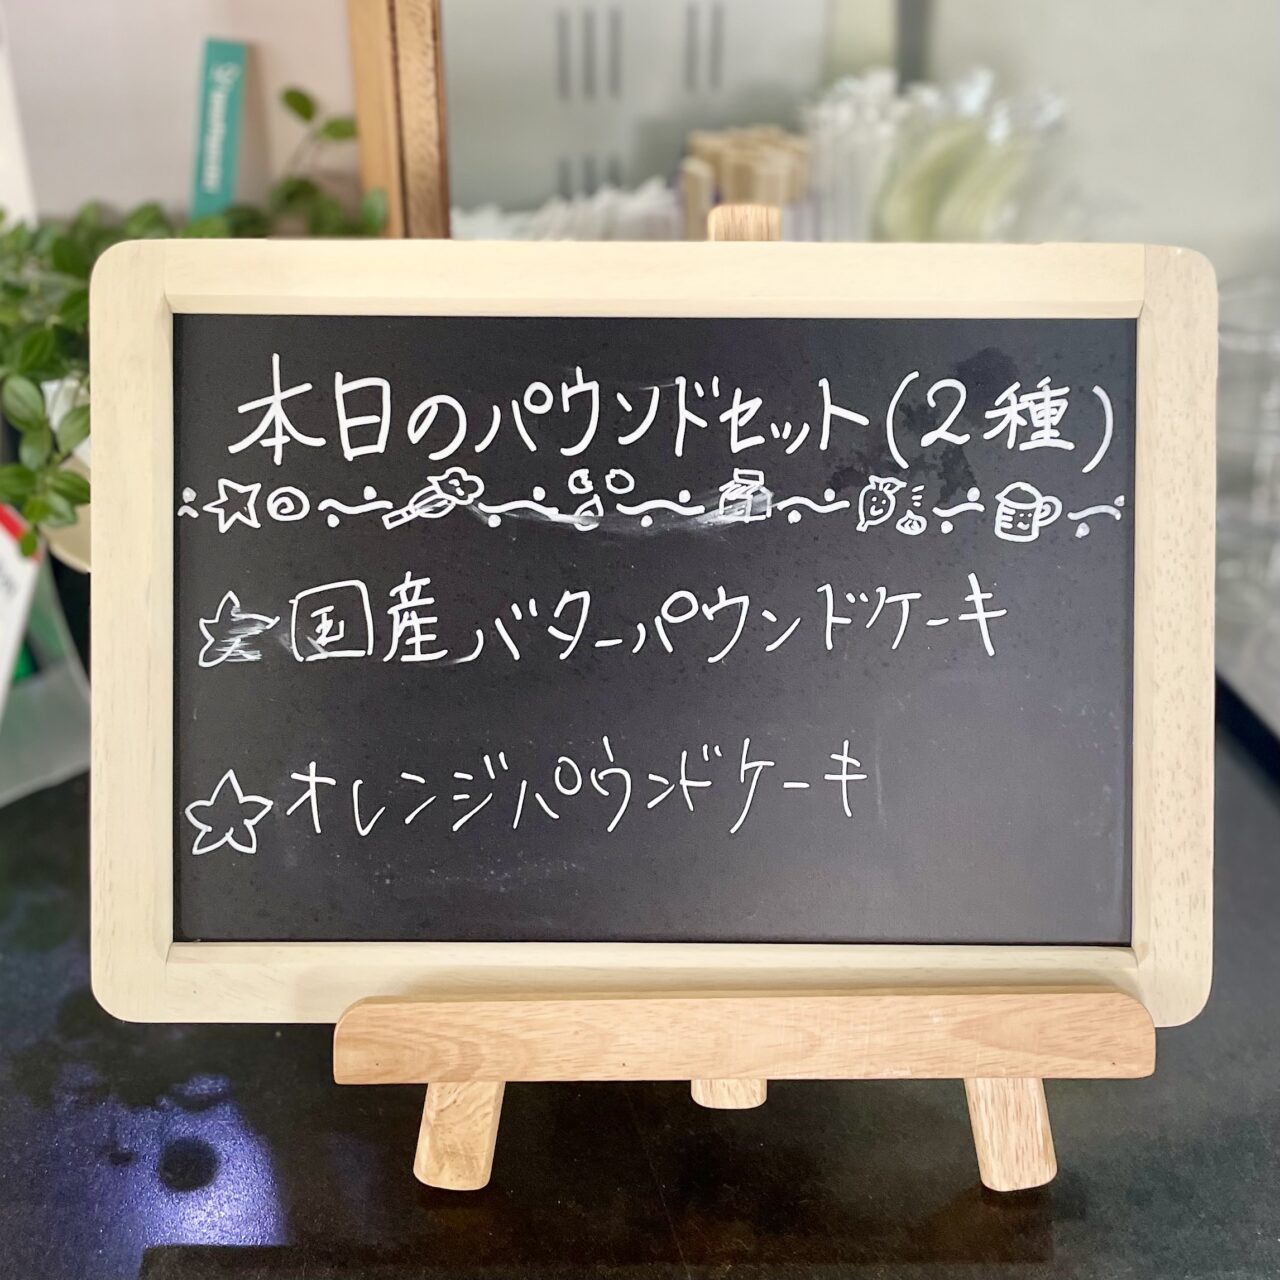 本日のパウンドセット(2種)
国産バターパウンドケーキ
オレンジパウンドケーキ